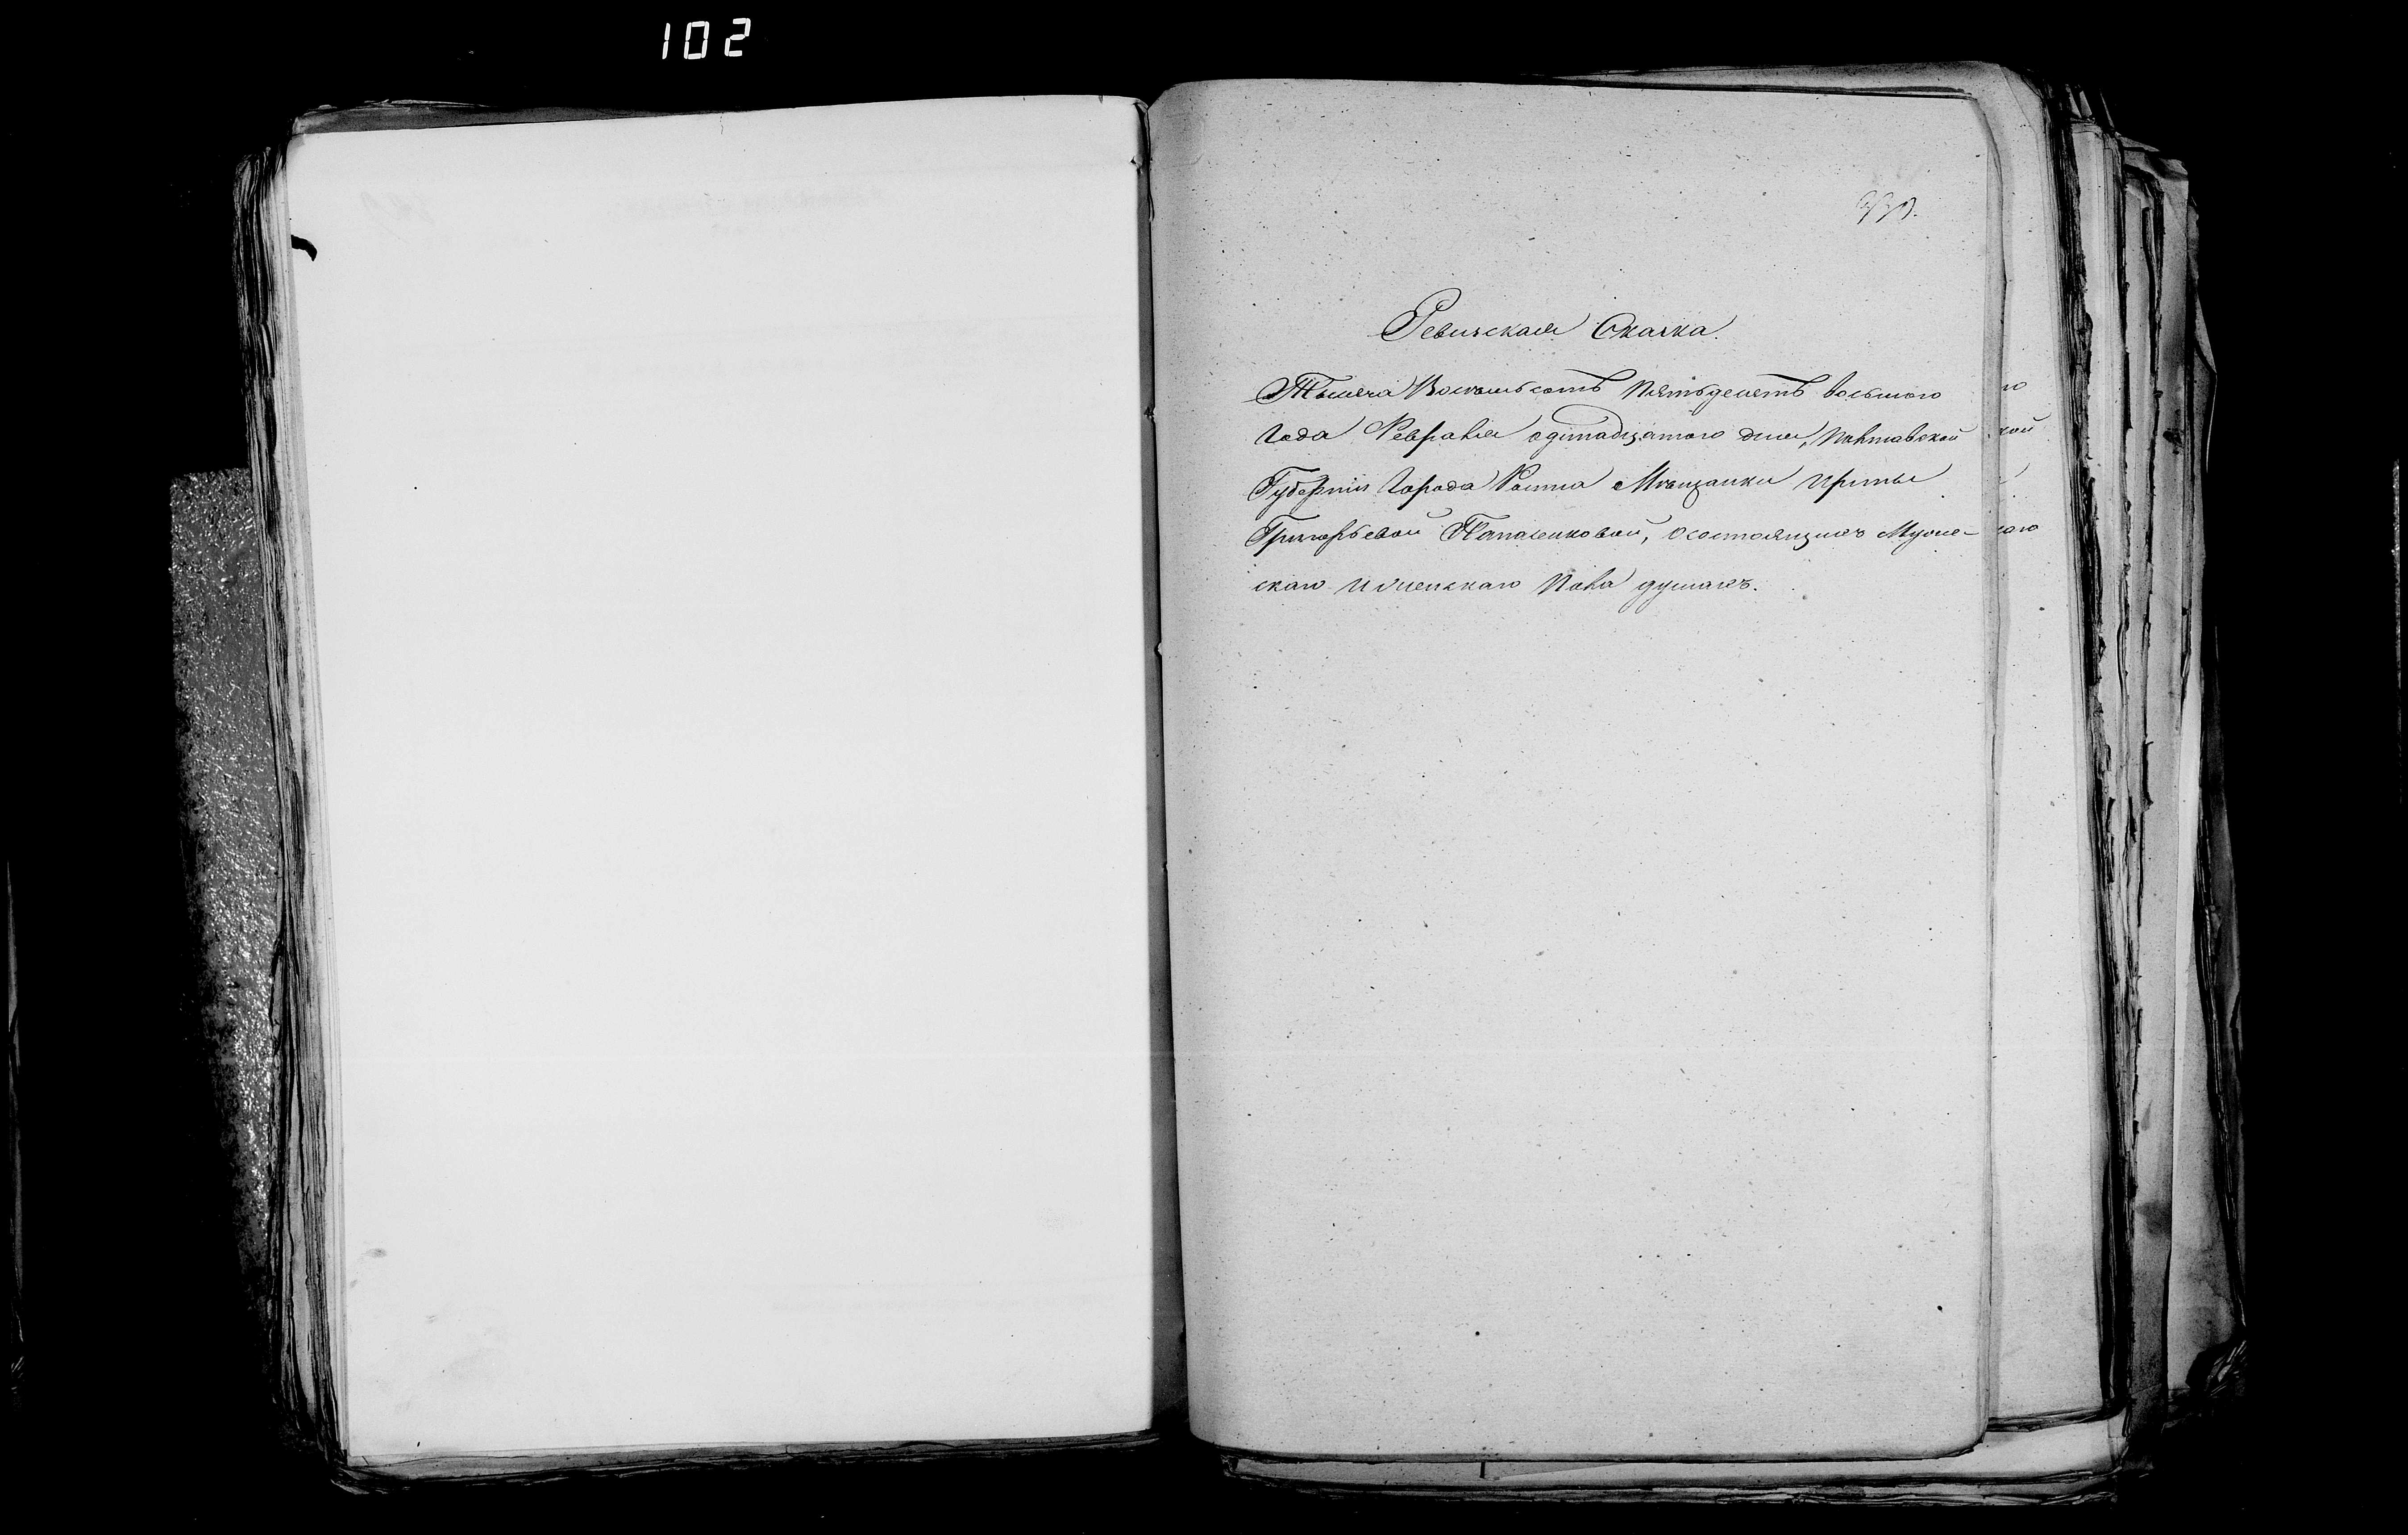 102
Ревизская Сказка.
Тысяча Восемьсотъ Пятьдесятъ восьмого
Года Февраля одинадцатого дня, Полтавской
Губерніи Города Ромна Мѣщанки Ирины
Григорьевой Папаленковой, о состоящихъ Муже-
скаго и женскаго Пола душахъ.